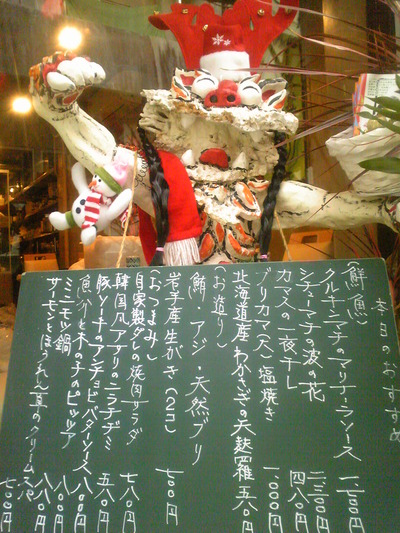 本日のおすすめ
(鮮魚)
クルキンマチのマリナーラソース 一二〇〇円
シチューマチの波の花 二三〇〇円
カマスの一夜干し 四八〇円
ブリカマ(大)塩焼き 一〇〇〇円
北海道産わかさぎの天麩羅 五八〇円
(お造り)
鮪・アジ・天然ブリ
岩手産生がき(2コ) 七〇〇円
(おつまみ)
自家製ダレの焼肉サラダ 七八〇円
韓国風アサリのニラチヂミ 五八〇円
豚ソーテのアンチョビバターソース 八八〇円
魚介と木の子のピッツァ 八〇〇円
ミニモツ鍋 八八〇円
サーモンとほうれん草のクリームスパ 七〇〇円